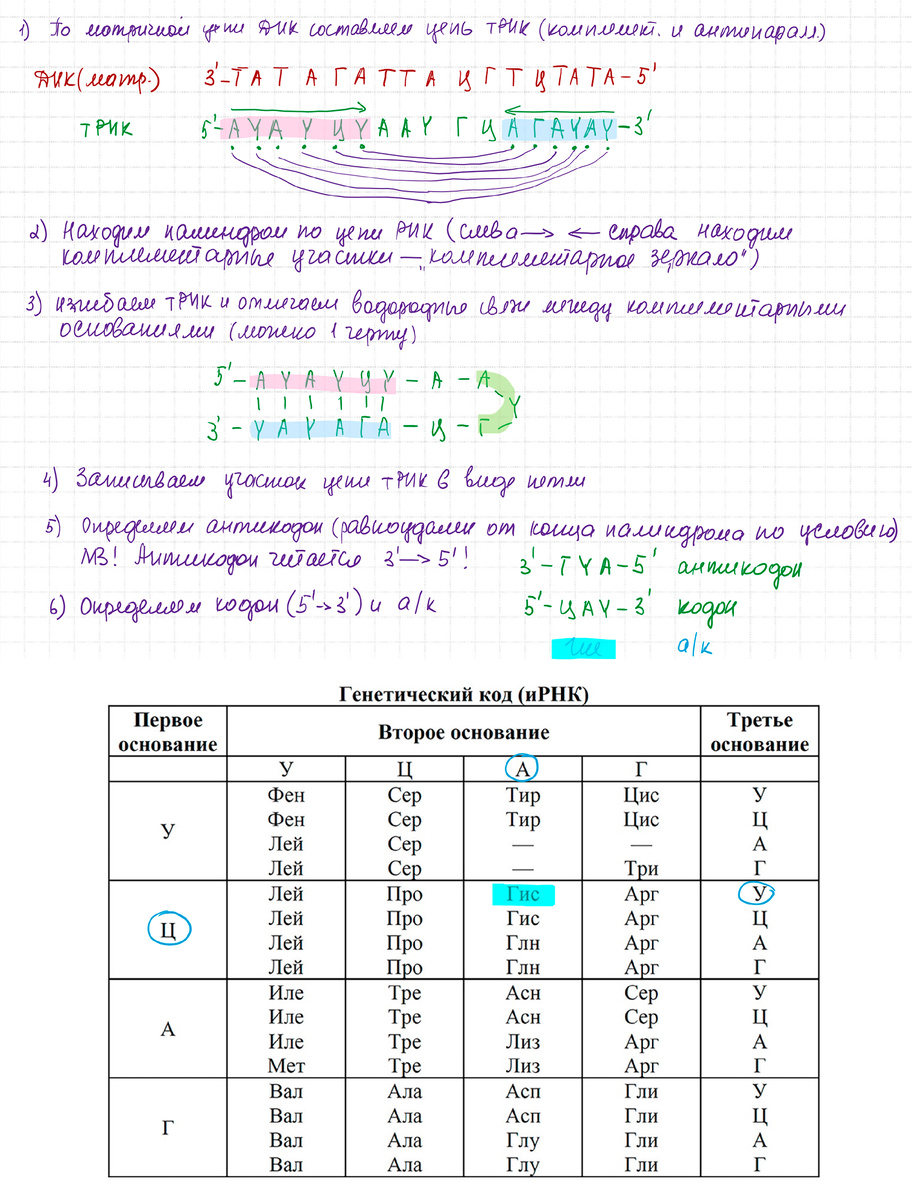 1) По матричной цепи ДНК составляем цепь тРНК (комплемент. и антипарал.)
ДНК (матр.) 3'-Т А Т А Г А Т Т А Ц Г Т Ц Т А Т А-5'
тРНК 5'-А У А У Ц У А А У Г Ц А Г А У А У-3'
2) Находим палиндром по цепи РНК (слева → ← справа находим
комплементарные участки — „комплементарное зеркало")
3) изгибаем тРНК и отмечаем водородные связи между комплементарными
основаниями (можно 1 черту)
5'- А У А У Ц У - А - А
У
3'- У А У А Г А - Ц - Г
4) Записываем участок цепи тРНК в виде петли
5) Определяем антикодон (равноудален от конца палиндрома по условию)
NB! Антикодон читается 3'→5'! 3'-Г У А-5' антикодон
6) Определяем кодон (5'→3') и а/к 5'-Ц А У-3' кодон
гис а/к
Генетический код (иРНК)
Первое основание Второе основание Третье основание
У Ц А Г
У
Фен Сер Тир Цис У
Фен Сер Тир Цис Ц
Лей Сер — — А
Лей Сер — Три Г
Ц
Лей Про Гис Арг У
Лей Про Гис Арг Ц
Лей Про Глн Арг А
Лей Про Глн Арг Г
А
Иле Тре Асн Сер У
Иле Тре Асн Сер Ц
Иле Тре Лиз Арг А
Мет Тре Лиз Арг Г
Г
Вал Ала Асп Гли У
Вал Ала Асп Гли Ц
Вал Ала Глу Гли А
Вал Ала Глу Гли Г